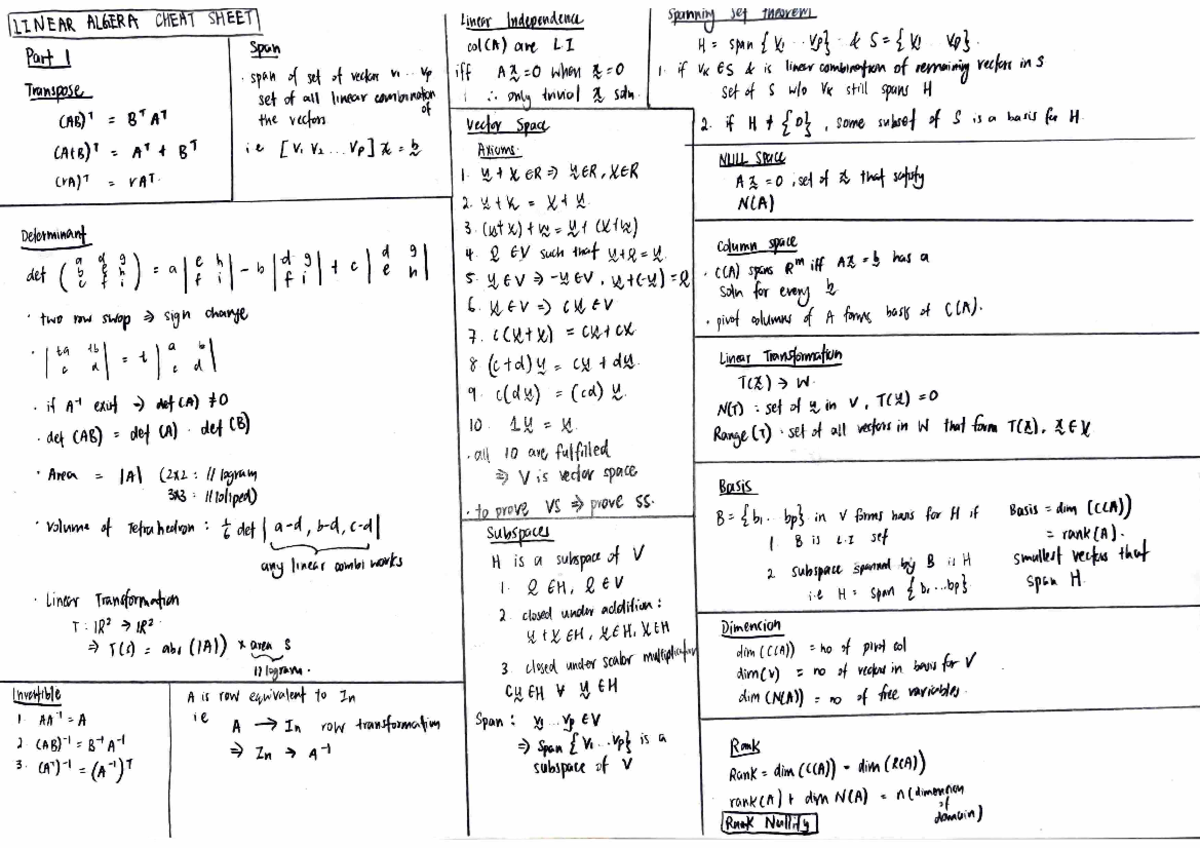 LINEAR ALGERA CHEAT SHEET
Part 1
Transpose
(AB)ᵀ = BᵀAᵀ
(A+B)ᵀ = Aᵀ + Bᵀ
(rA)ᵀ = rAᵀ.
Span
· span of set of vector v₁ ... vp
set of all linear combination
of
the vectors
i.e [v₁ v₂ ... vp] x = b
Determinant
det ( a d g = a | e h | - b | d g | + c | d g |
b e h f i f i e h
c f i )
· two row swop ⇒ sign change
· | ta tb | = t | a b |
c d c d
· if A⁻¹ exist → det(A) ≠ 0
· det (AB) = det(A) · det(B)
· Area = |A| (2x2 : //logram
3x3 : //loliped)
· Volume of Tetrahedron : 1/6 det | a-d, b-d, c-d |
any linear combi works
· Linear Transformation
T : ℝ² → ℝ²
⇒ T(s) = abs (|A|) × area s
//logram.
Invertible
1. AA⁻¹ = A
2. (AB)⁻¹ = B⁻¹A⁻¹
3. (Aᵀ)⁻¹ = (A⁻¹)ᵀ
A is row equivalent to In
ie A → In row transformation
⇒ In → A⁻¹
Linear Independence
col(A) are LI
iff Ax = 0 when x = 0
∴ only trivial x soln.
Vector Space
Axioms.
1. u + v ∈ R ⇒ u ∈ R, v ∈ R
2. u + v = v + u.
3. (u+v) + w = u + (v+w)
4. 0 ∈ V such that u + 0 = u.
5. u ∈ V ⇒ -u ∈ V, u+(-u) = 0
6. u ∈ V ⇒ cu ∈ V
7. c(u+v) = cu + cv
8 (c+d)u = cu + du.
9. c(du) = (cd)u.
10. 1u = u.
· all 10 are fulfilled
⇒ V is vector space
· to prove VS ⇒ prove SS.
Subspaces
H is a subspace of V
1. 0 ∈ H, 0 ∈ V
2. closed under addition :
u + v ∈ H, u ∈ H, v ∈ H
3. closed under scalar multiplication
cu ∈ H ∀ u ∈ H
Span : v₁ ... vp ∈ V
⇒ span {v₁ ... vp} is a
subspace of V
Spanning set theorem
H = span {v₁ ... vp} & S = {v₁ ... vp}.
1. if vk ∈ S & is linear combination of remaining vectors in S
set of S w/o vk still spans H
2. if H ≠ {0}, some subset of S is a basis for H.
NULL Space
Ax = 0 ; set of x that satisfy
N(A)
Column space
· C(A) spans Rᵐ iff Ax = b has a
soln for every b
· pivot columns of A forms basis of C(A).
Linear Transformation
T(x) → W.
N(T) : set of u in V, T(u) = 0
Range(T) : set of all vectors in W that form T(x), x ∈ V
Basis
B = {b₁ ... bp} in V forms basis for H if
1. B is L.I set
2 subspace spanned by B is H
i.e H = span {b₁ ... bp}
Basis = dim (C(A))
= rank(A).
smallest vectors that
span H.
Dimension
dim (C(A)) = no of pivot col
dim(V) = no of vectors in basis for V
dim (N(A)) = no of free variables.
Rank
Rank = dim(C(A)) = dim(R(A))
rank(A) + dim N(A) = n (dimension
of
domain)
Rank Nullity